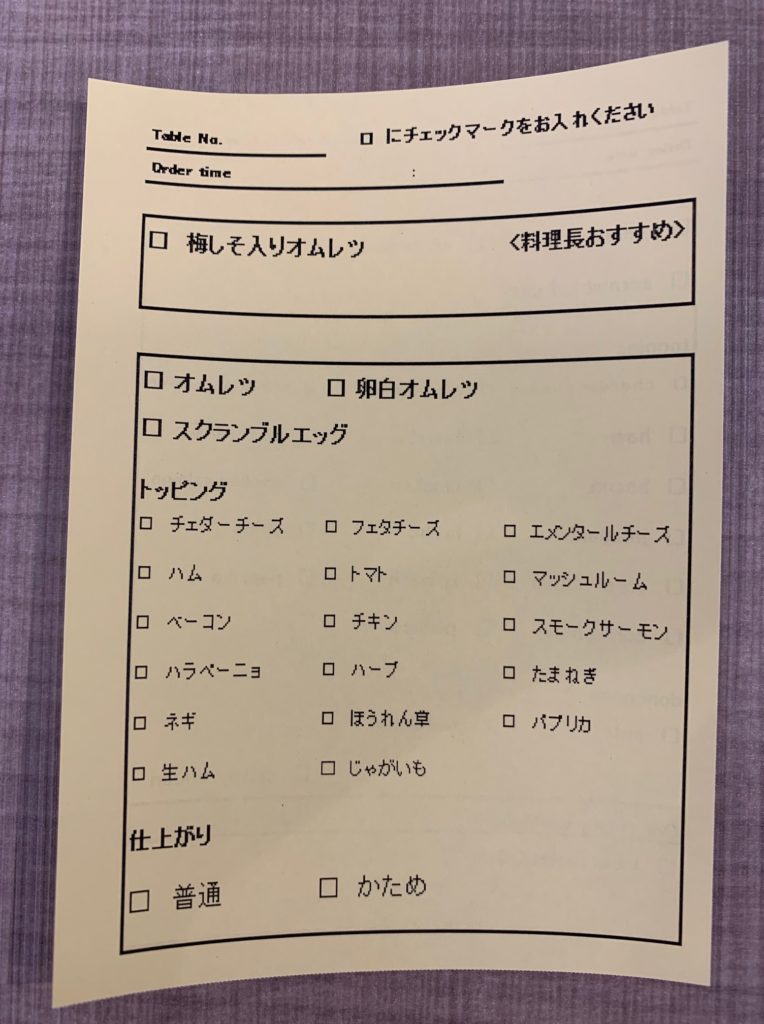 Table No.
□ にチェックマークをお入れください
Order time :
□ 梅しそ入りオムレツ 〈料理長おすすめ〉
□ オムレツ □ 卵白オムレツ
□ スクランブルエッグ
トッピング
□ チェダーチーズ □ フェタチーズ □ エメンタールチーズ
□ ハム □ トマト □ マッシュルーム
□ ベーコン □ チキン □ スモークサーモン
□ ハラペーニョ □ ハーブ □ たまねぎ
□ ネギ □ ほうれん草 □ パプリカ
□ 生ハム □ じゃがいも
仕上がり
□ 普通 □ かため